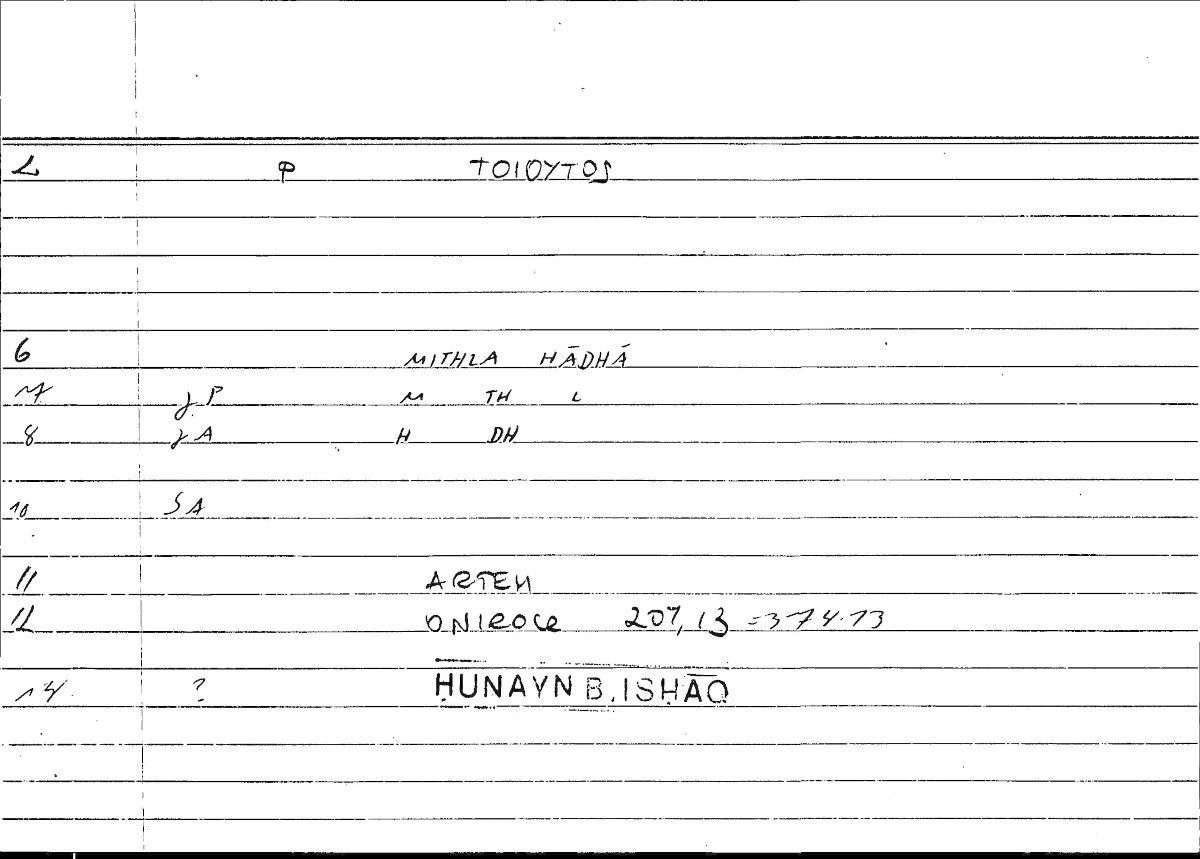 2 φ ΤΟΙΟΥΤΟS
6 MITHLA HĀDHĀ
7 γP M TH L
8 γA H DH
10 SA
11 ARTEM
12 ONIROCR 207,13 =374.13
14 ? ḤUNAYN B. ISḤĀQ